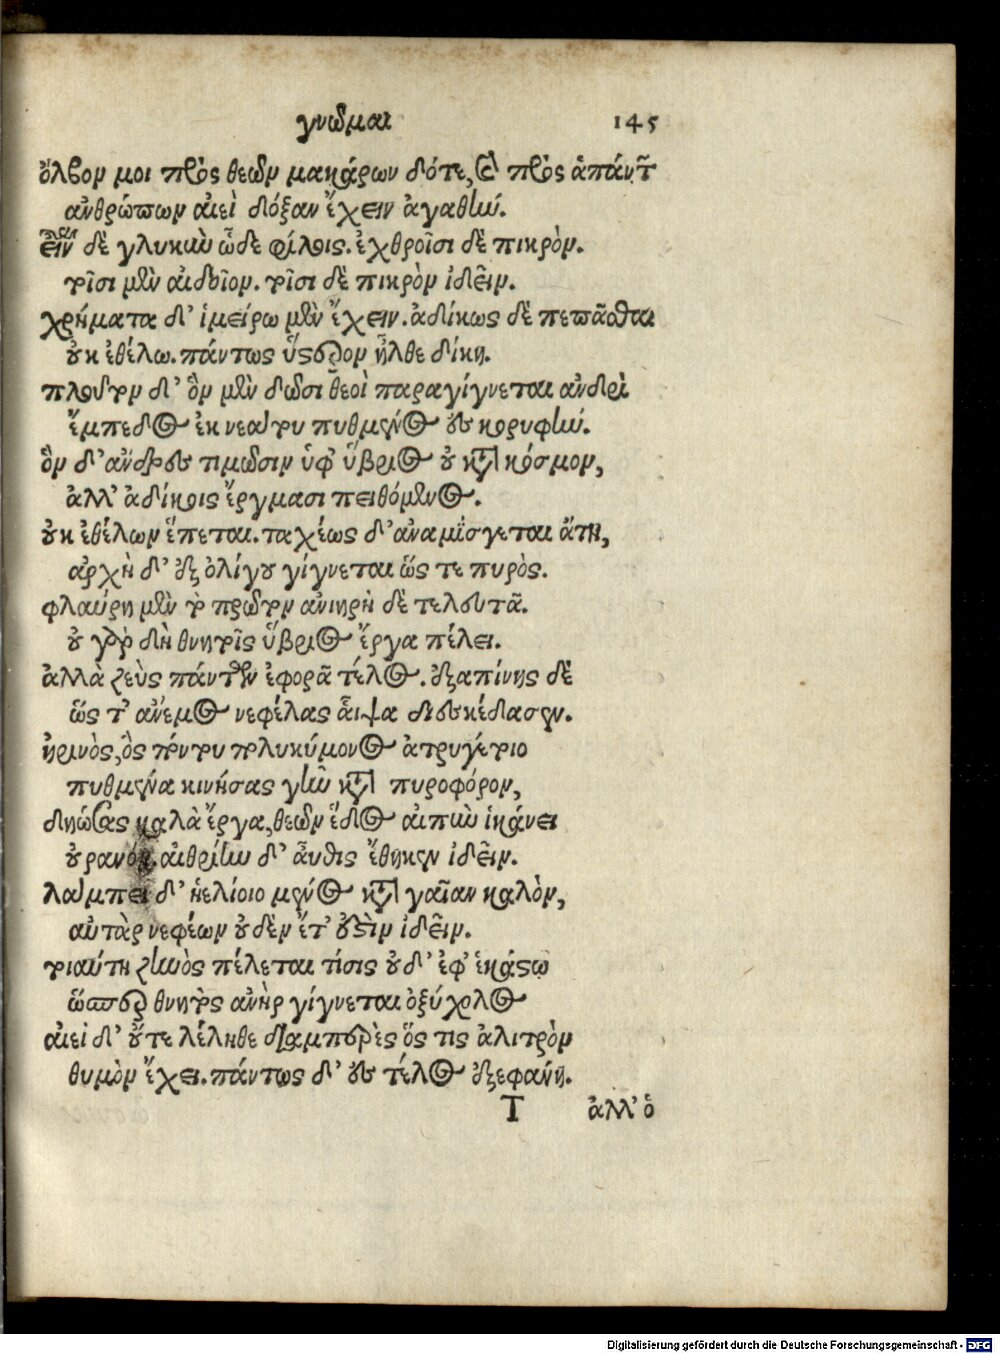 γνῶμαι 145
ὄλβον μοι πρὸς θεῶν μακάρων δότε, καὶ πρὸς ἁπάντων
ἀνθρώπων αἰεὶ δόξαν ἔχειν ἀγαθίω.
εἶναι δὲ γλυκιὼ ὧδε φίλοις. ἐχθροῖσι δὲ πικρὸν.
τοῖσι μὲν αἰδοῖον. τοῖσι δὲ πικρὸν ἰδεῖν.
χρήματα δ' ἱμείρω μὲν ἔχειν. ἀδίκως δὲ πεπᾶσθαι
οὐκ ἐθέλω. πάντως ὕστερον ἦλθε δίκη.
πλοῦτον δ' ὃν μὲν δῶσι θεοὶ παραγίγνεται ἀνδρὶ
ἔμπεδος ἐκ νεάτου πυθμένος εἰς κορυφίω.
ὃν δ' ἄνδρες τιμῶσιν ὑφ' ὕβριος οὐ κατὰ κόσμον,
ἀλλ' ἀδίκοις ἔργμασι πειθόμενος.
οὐκ ἐθέλων ἕπεται. ταχέως δ' ἀναμίσγεται ἄτη,
ἀρχὴ δ' ἐξ ὀλίγου γίγνεται ὥς τε πυρὸς.
φλαύρη μὲν τὸ πρῶτον ἀνιηρὴ δὲ τελευτᾶ.
οὐ γὰρ δὴ θνητοῖς ὕβριος ἔργα πέλει.
ἀλλὰ ζεὺς πάντων ἐφορᾶ τέλος. ἐξαπίνης δὲ
ὥς τ' ἄνεμος νεφέλας αἶψα διεσκέδασεν.
ἠρινὸς, ὃς πόντου πολυκύμονος ἀτρυγέτοιο
πυθμένα κινήσας γίω κατὰ πυροφόρον,
δηώσας καλὰ ἔργα, θεῶν ἕδος αἰπιὼ ἱκάνει
οὐρανόν. αἰθρίίω δ' αὖθις ἔθηκεν ἰδεῖν.
λάμπει δ' ἠελίοιο μένος κατὰ γαῖαν καλὸν,
αὐτὰρ νεφέων οὐδὲν ἔτ' οὐστὶν ἰδεῖν.
τοιαύτη ζίωὸς πέλεται τίσις οὐδ' ἐφ' ἑκάστῳ
ὥσπερ θνητὸς ἀνὴρ γίγνεται ὀξύχολος
αἰεὶ δ' οὔτε λέληθε διαμπερὲς ὅς τις ἀλιτρὸν
θυμὸν ἔχει. πάντως δ' εἰς τέλος ἐξεφάνη.
T ἀλλ' ὁ
Digitalisierung gefördert durch die Deutsche Forschungsgemeinschaft - DFG